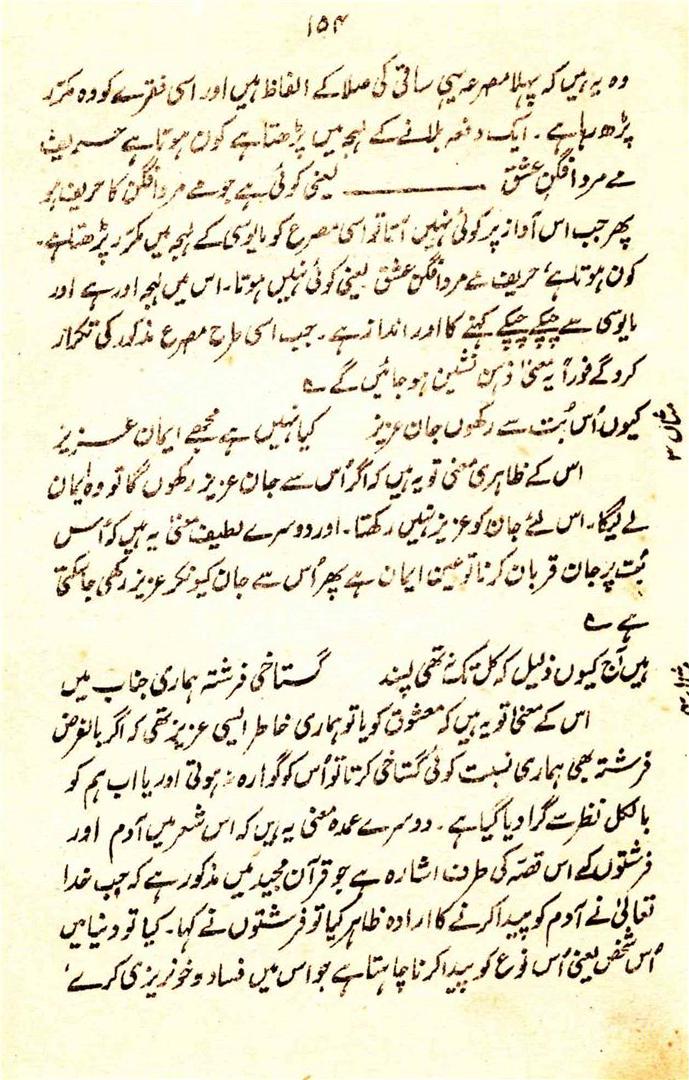 ۱۵۴
وہ یہ ہیں کہ پہلا مصرعہ یہی ساقی کی صلا کے الفاظ ہیں اور اسی فقرے کو وہ مکرّر
پڑھ رہا ہے۔ ایک دفعہ بلانے کے لہجہ میں پڑھتا ہے کون ہوتا ہے حریف
مے مرد افگنِ عشق ــــــــــ یعنی کوئی ہے جو مے مرد افگن کا حریف ہو
پھر جب اس آواز پر کوئی نہیں آتا تو اسی مصرع کو مایوسی کے لہجہ میں مکرّر پڑھتا ہے۔
کون ہوتا ہے، حریف مے مرد افگن عشق یعنی کوئی نہیں ہوتا۔ اس میں لہجہ اور ہے اور
مایوسی سے چپکے چپکے کہنے کا اور انداز ہے۔ جب اسی طرح مصرع مذکور کی تکرار
کرو گے فوراً یہ معنیٰ ذہن نشین ہو جائیں گے ؎
کیوں اُس بُت سے رکھوں جان عزیز کیا نہیں ہے مجھے ایمان عزیز
مثال ۳
اس کے ظاہری معنی تو یہ ہیں کہ اگر اُس سے جان عزیز رکھوں گا تو وہ ایمان
لے لیگا۔ اس لئے جان کو عزیز نہیں رکھتا۔ اور دوسرے لطیف معنیٰ یہ ہیں کہ اُس
بُت پر جان قربان کرنا تو عین ایمان ہے پھر اُس سے جان کیونکر عزیز رکھی جا سکتی
ہے ؎
ہیں آج کیوں ذلیل کہ کل تک نہ تھی پسند گستاخیٔ فرشتہ ہماری جناب میں
اس کے معنیٰ تو یہ ہیں کہ معشوق کو یا تو ہماری خاطر ایسی عزیز تھی کہ اگر بالفرض
فرشتہ بھی ہماری نسبت کوئی گستاخی کرتا تو اُس کو گوارہ نہ ہوتی اور یا اب ہم کو
بالکل نظر سے گرا دیا گیا ہے۔ دوسرے عمدہ معنی یہ ہیں کہ اس شعر میں آدم اور
فرشتوں کے اس قصّہ کی طرف اشارہ ہے جو قرآن مجید میں مذکور ہے کہ جب خدا
تعالیٰ نے آدم کو پیدا کرنے کا ارادہ ظاہر کیا تو فرشتوں نے کہا۔ کیا تو دنیا میں
اُس شخص یعنی اُس نوع کو پیدا کرنا چاہتا ہے جو اس میں فساد و خونریزی کرے،